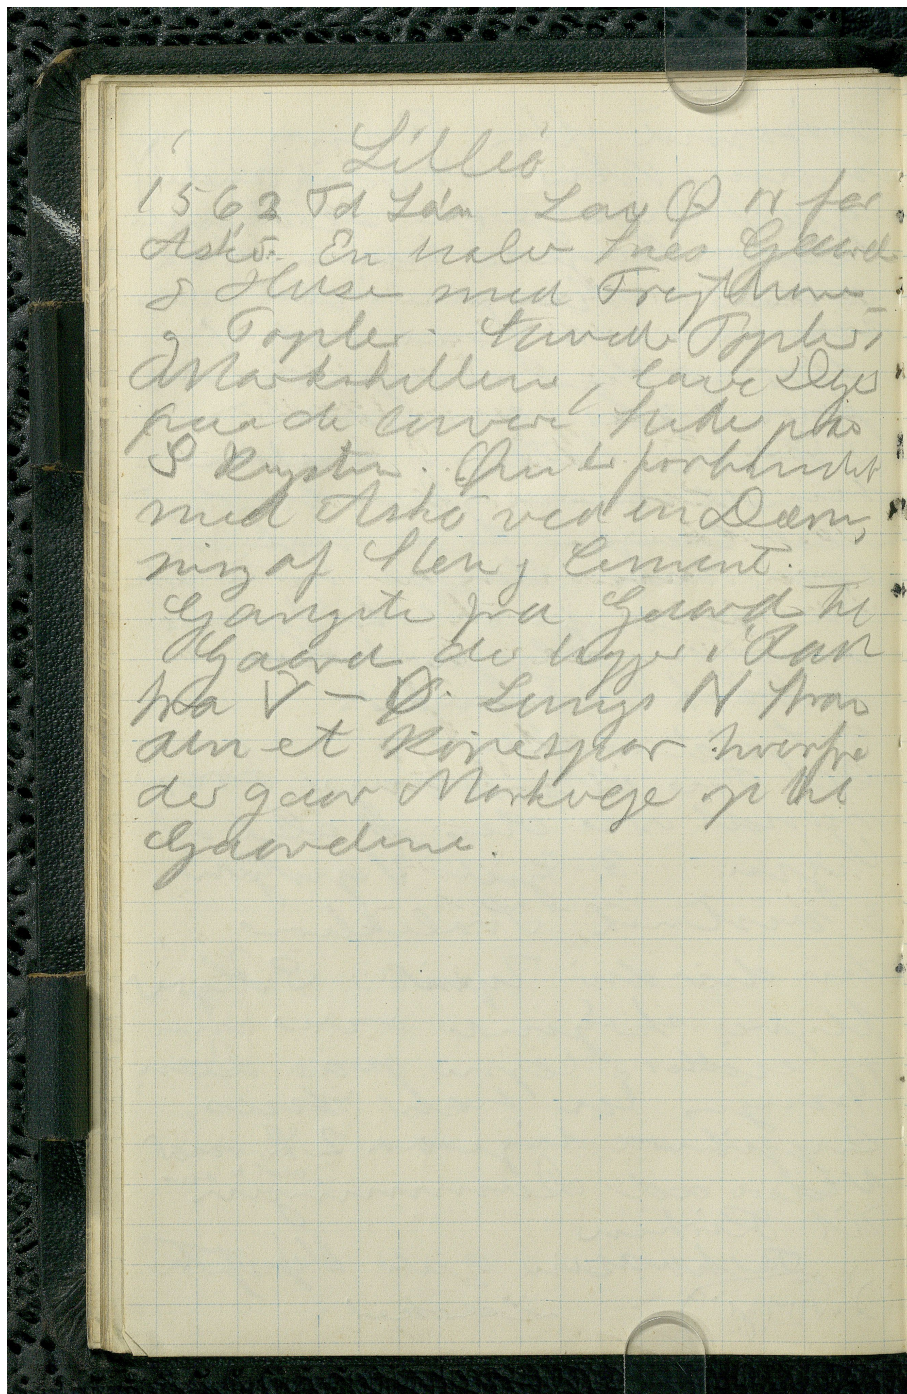 Lilleö
1562 Td Lan Lav Ø N for
Askö. En halv Snes Gaarde
& Huse med Frugthaver
og Popler. Stævede Popler i
Markskellene, lave Diger
paa de lavere Steder paa
S Kysten. Øen er forbundet
med Askö ved en Dæm-
ning af Sten og Cement.
Gangsti fra Gaard til
Gaard der ligger i Rad
fra V – Ø. Langs N Stran
den et Körespor hvorfra
der gaar Markveje op til
Gaardene.